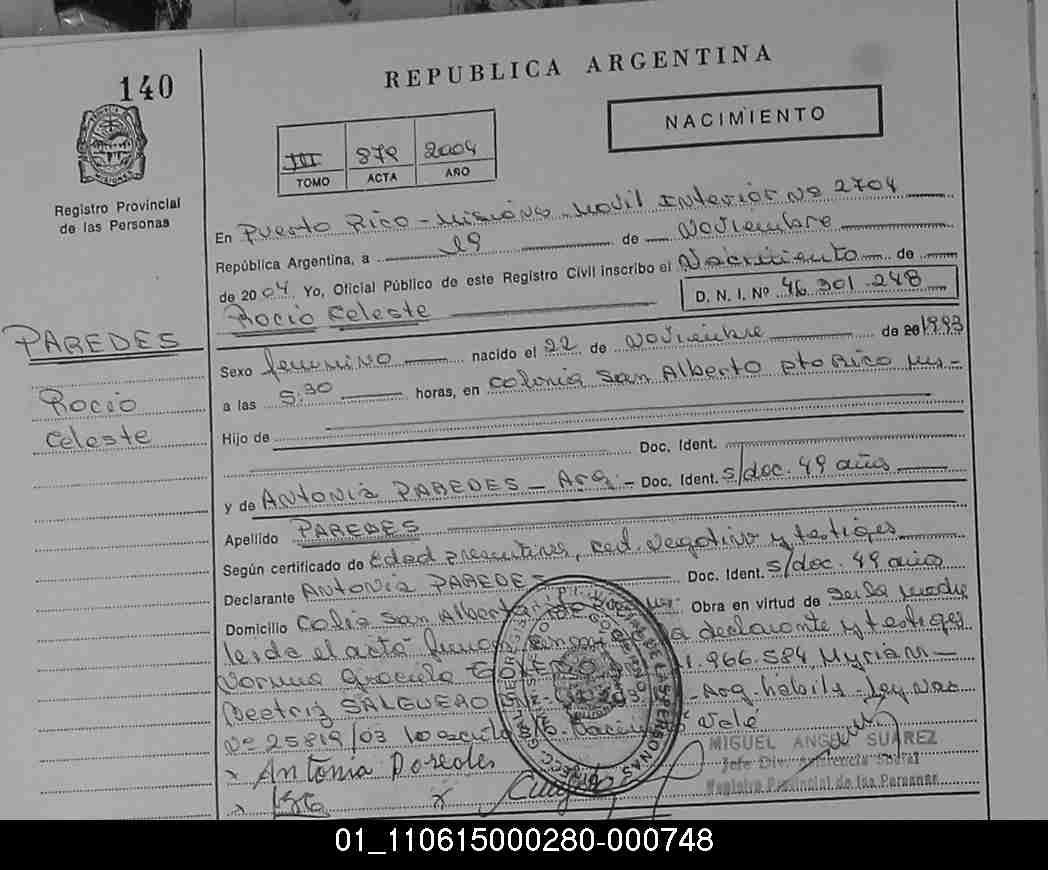 140
REPUBLICA ARGENTINA
NACIMIENTO
III 879 2004
TOMO ACTA AÑO
Registro Provincial
de las Personas
En Puerto Rico - Misiones Movil Interior Nº 2704
República Argentina, a 19 de Noviembre
de 2004 Yo, Oficial Público de este Registro Civil inscribo el Nacimiento de
Rocio Celeste D. N. I. Nº 46.301.248
PAREDES
Rocio
Celeste
Sexo femenino nacido el 22 de Noviembre de 1993
a las 5:30 horas, en Colonia San Alberto Pto Rico
Hijo de
Doc. Ident.
y de ANTONIA PAREDES - Arg. - Doc. Ident. s/doc. 49 años
Apellido PAREDES
Según certificado de Edad presuntiva, ced. negativo y testigos
Declarante ANTONIA PAREDES Doc. Ident. s/doc. 49 años
Domicilio San Alberto Obra en virtud de
Leida el acta declarante y testigos
Norma Graciela 1.966.584 Myriam
Beatriz SALGUERO Arg. habils - Ley Nac
Nº 25819/03 Vale
MIGUEL ANGEL SUAREZ
Jefe Div. Asistencia Social
Registro Provincial de las Personas
x Antonia Paredes
01_110615000280-000748